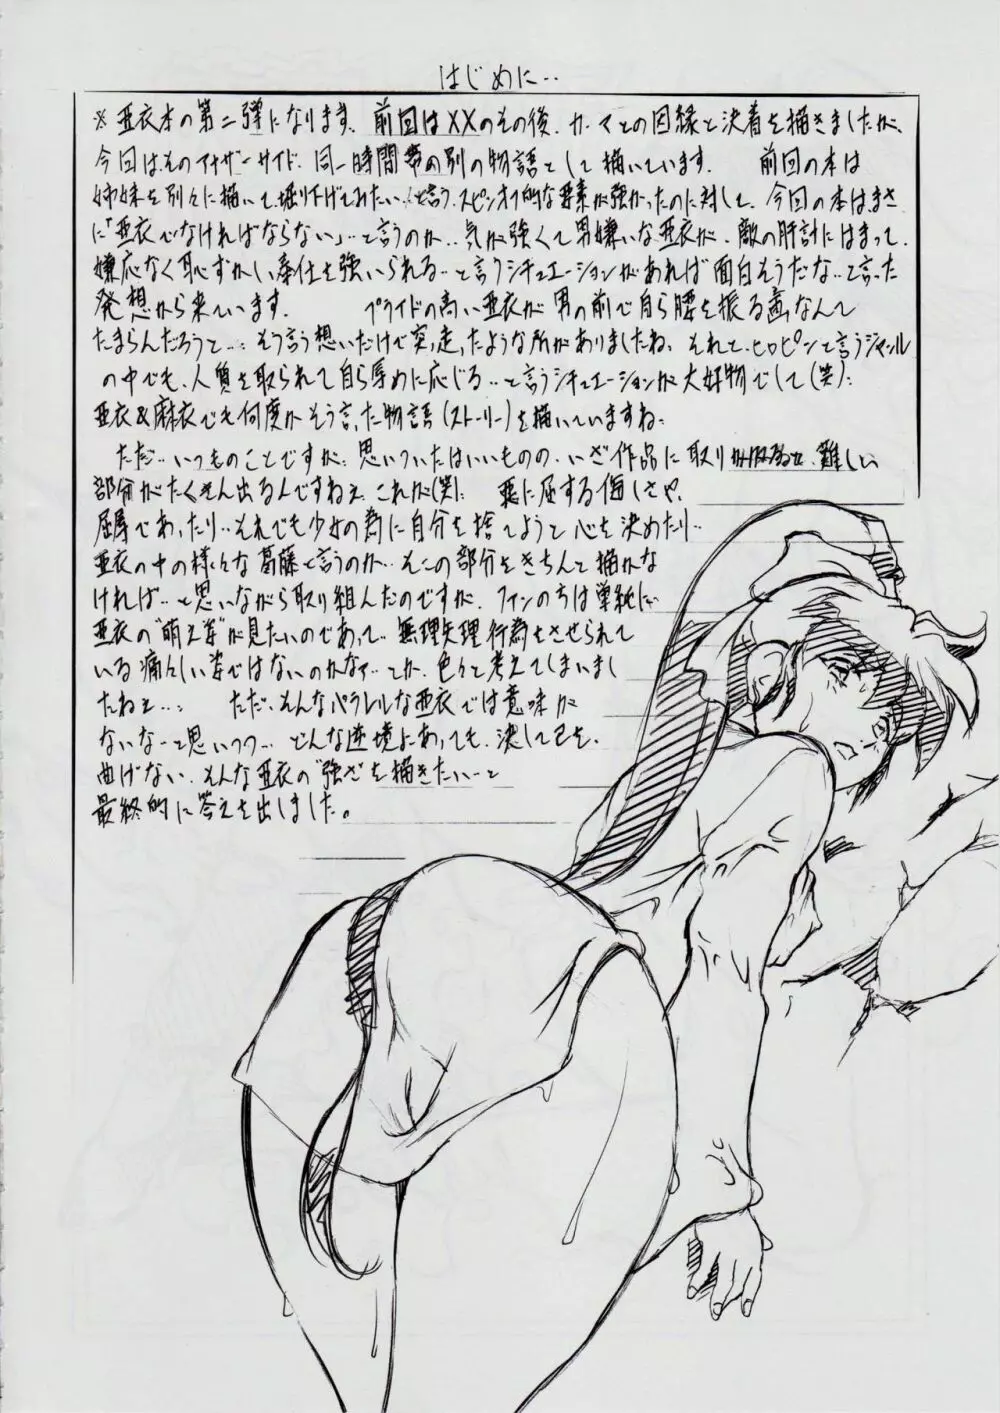 はじめに…
※亜衣本の第二弾になります、前回はXXのその後、カーマとの因縁と決着を描きましたが、
今回はそのアナザーサイド、同一時間帯の別の物語として描いています。 前回の本は
姉妹を別々に描いて、堀り下げてみたい…と言う、スピンオフ的な要素が強かったのに対して、今回の本はまさ
に「亜衣でなければならない」…と言うのか…気が強くて男嫌いな亜衣が、敵の奸計にはまって、
嫌応なく恥ずかしい奉仕を強いられる…と言うシチュエーションがあれば面白そうだな…と言った
発想から来ています。 プライドの高い亜衣が男の前で自ら腰を振る姿なんて
たまらんだろうと…そう言う想いだけで突っ走ったような所がありましたね、それと、ヒロピンと言うジャンル
の中でも、人質を取られて自ら辱めに応じる…と言うシチュエーションが大好物でして(笑)…
亜衣&麻衣でも何度かそう言った物語(ストーリー)を描いていますね…
ただ…いつものことですが…思いついたはいいものの、いざ作品に取り掛かると、難しい
部分がたくさん出るんですねえ、これが(笑)… 悪に屈する悔しさや、
屈辱であったり…それでも少女の為に自分を捨てようと心を決めたり…
亜衣の中の様々な葛藤と言うのか…そこの部分をきちんと描かな
ければ…と思いながら取り組んだのですが、ファンの方は単純に
亜衣の“萌え姿”が見たいのであって、無理矢理行為をさせられて
いる痛々しい姿ではないのかなァ…とか、色々と考えてしまいまし
たねェ… ただ、そんなパラレルな亜衣では意味が
ないなーと思いつつ…どんな逆境にあっても、決して己を、
曲げない、そんな亜衣の“強さ”を描きたい…と
最終的に答えを出しました。